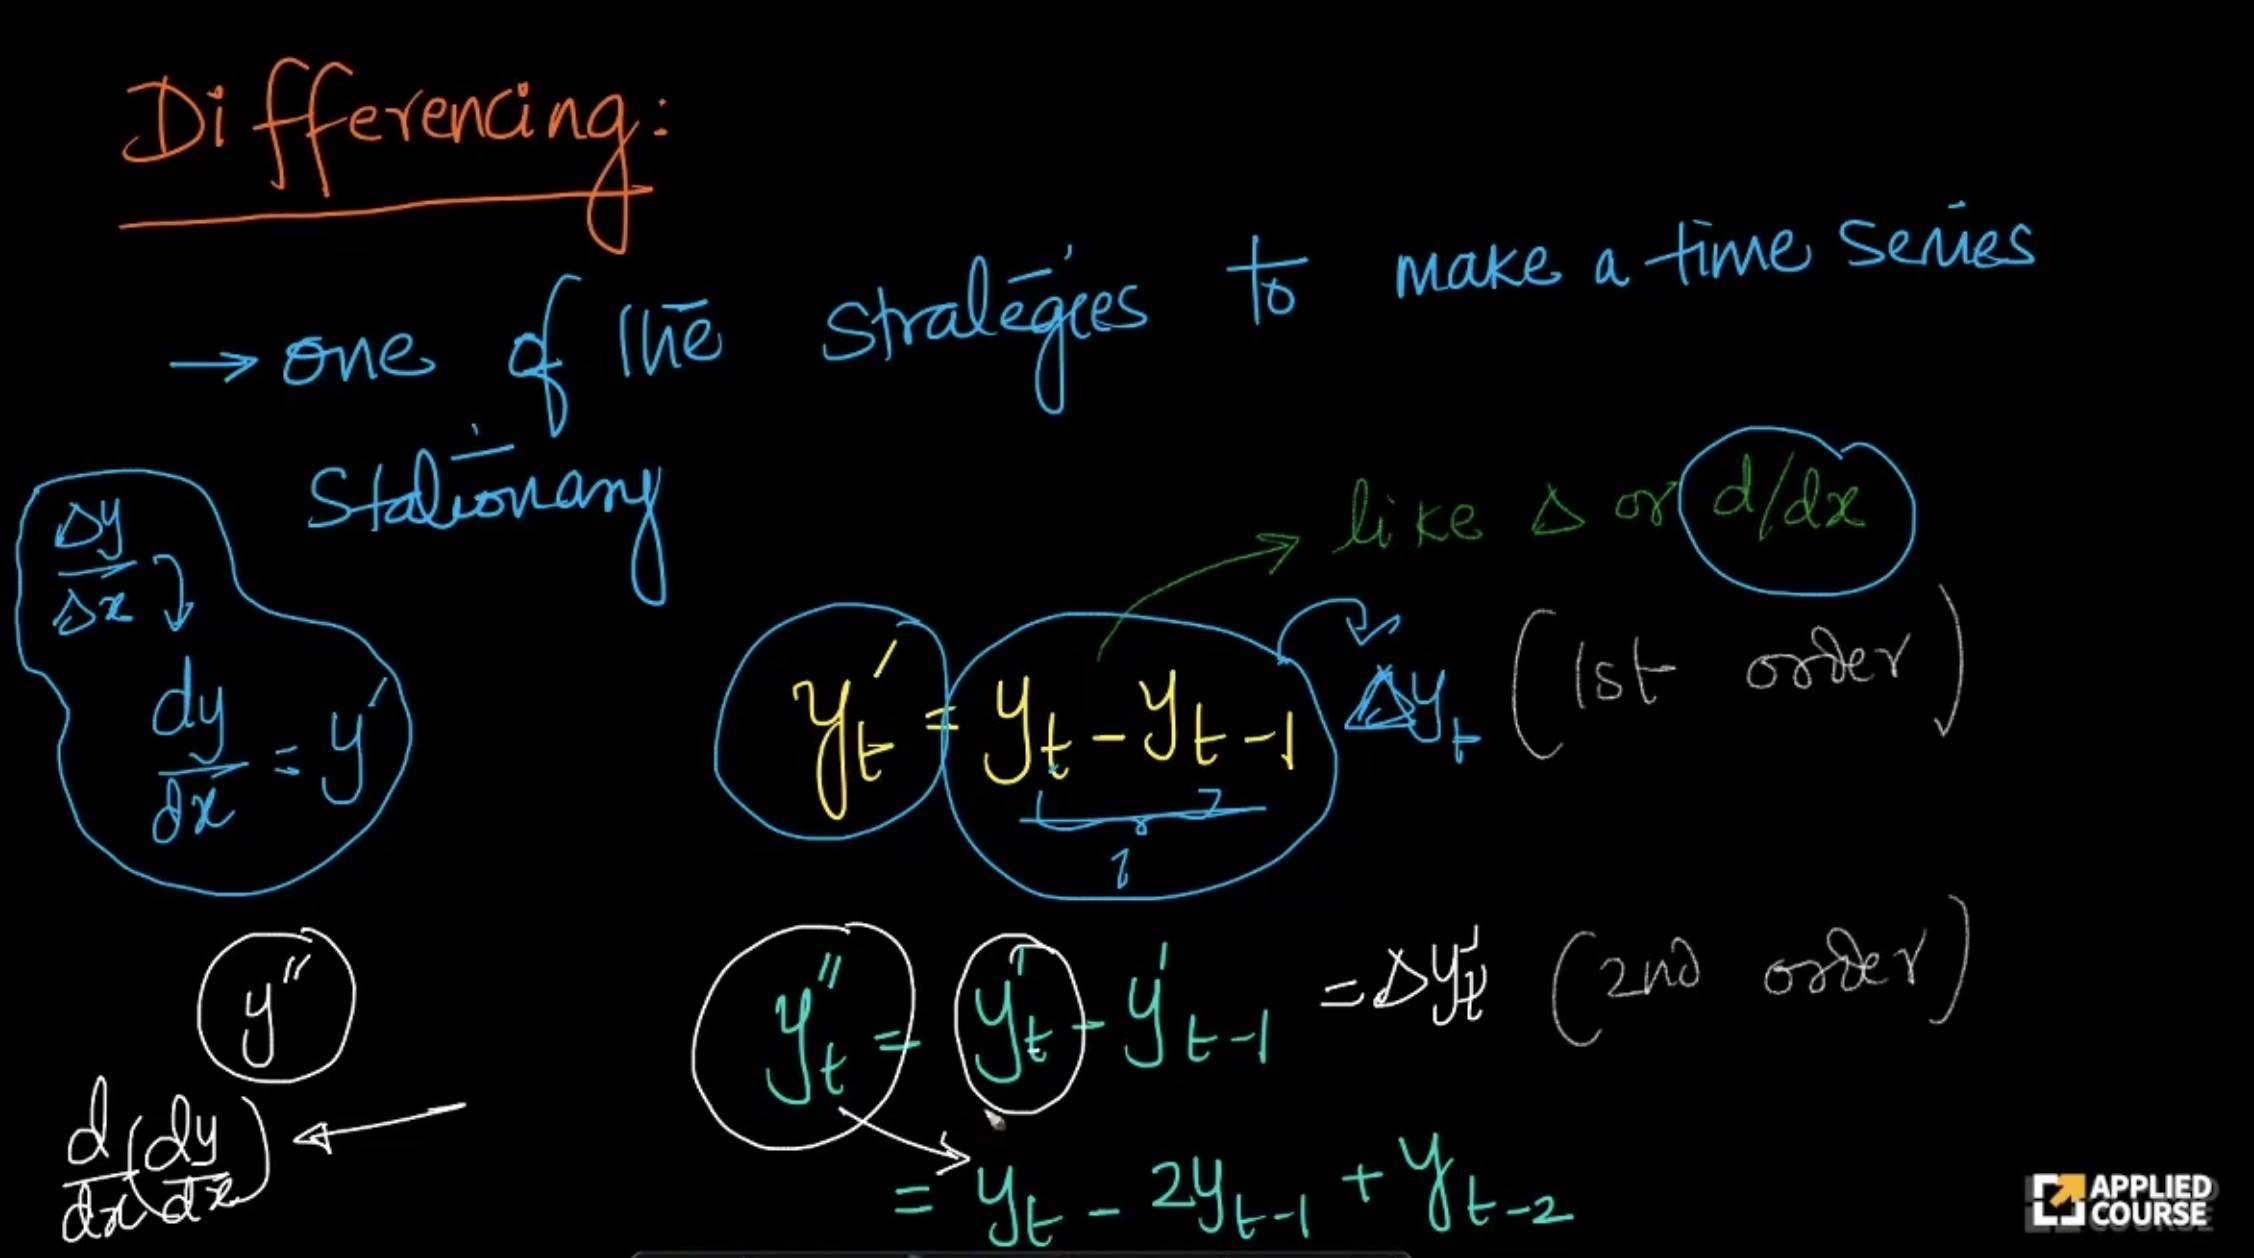 Differencing:
→ one of the strategies to make a time series
stationary
like Δ or d/dx
Δy/Δx
dy/dx = y'
y't = yt - yt-1 Δyt (1st order)
1
y''
y''t = y't - y't-1 = Δy't (2nd order)
d/dx (dy/dx)
= yt - 2yt-1 + yt-2
APPLIED
COURSE